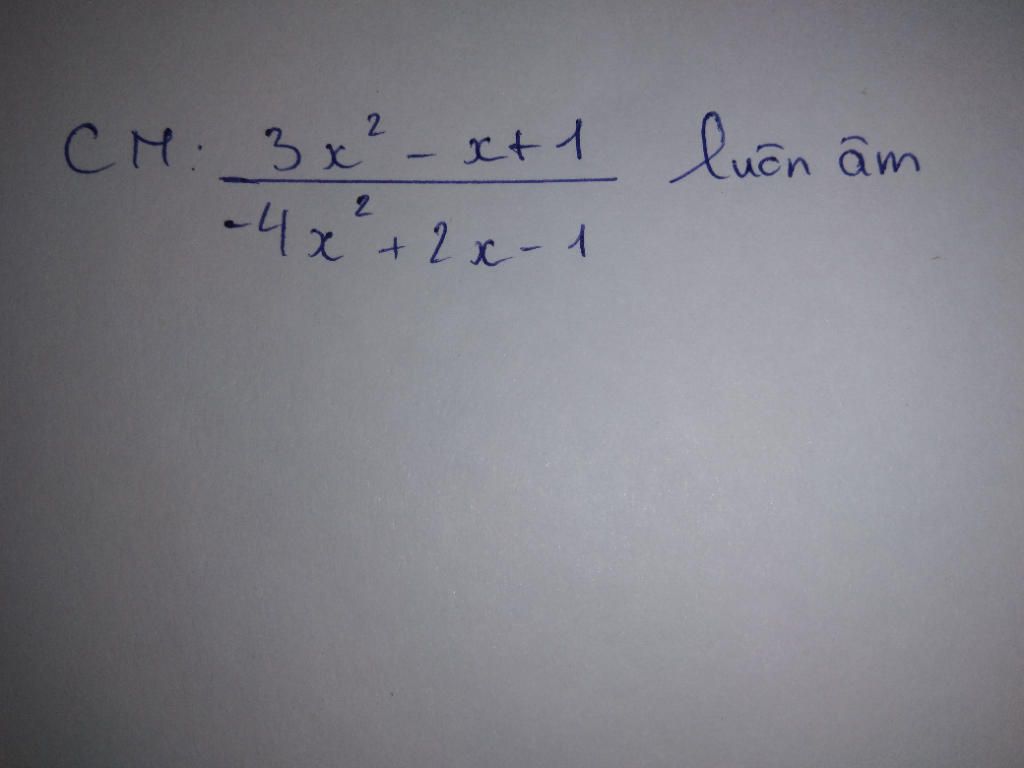 CM: \frac{3x^2 - x + 1}{-4x^2 + 2x - 1} luôn âm